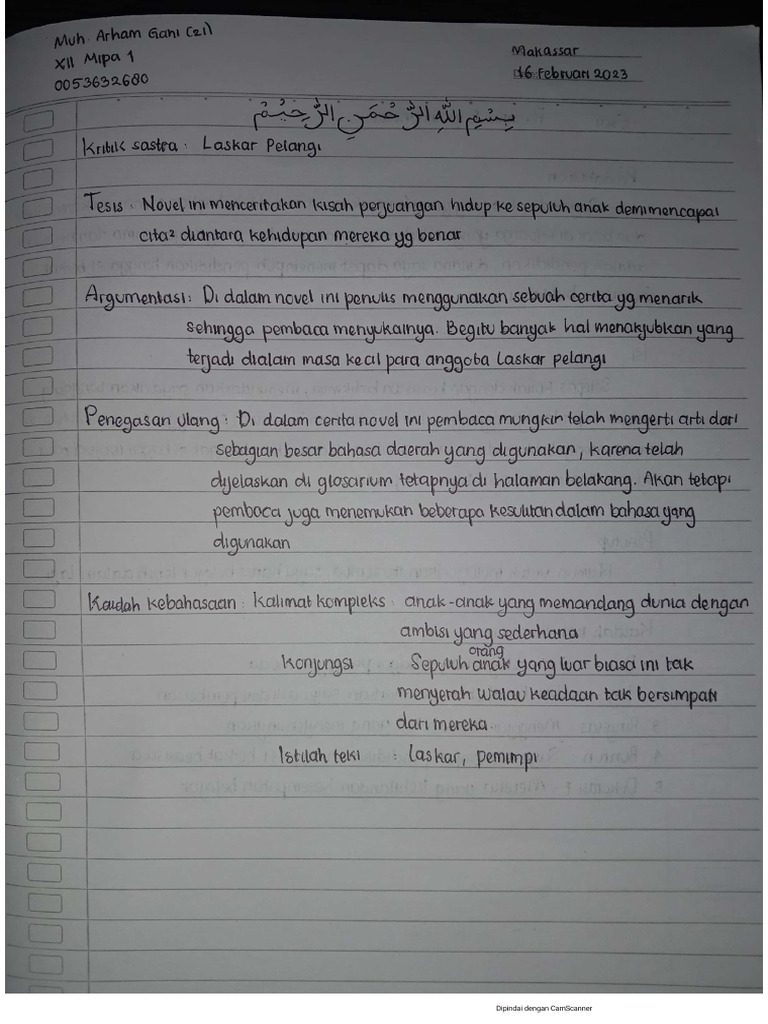 Muh. Arham Gani (21)
XII Mipa 1
0053632680
Makassar
16 Februari 2023
بِسْمِ اللهِ الرَّحْمَنِ الرَّحِيْمِ
Kritik sastra : Laskar Pelangi
Tesis : Novel ini menceritakan kisah perjuangan hidup ke sepuluh anak demi mencapai
cita² diantara kehidupan mereka yg benar
Argumentasi : Di dalam novel ini penulis menggunakan sebuah cerita yg menarik
sehingga pembaca menyukainya. Begitu banyak hal menakjubkan yang
terjadi dialam masa kecil para anggota laskar pelangi
Penegasan ulang : Di dalam cerita novel ini pembaca mungkin telah mengerti arti dari
sebagian besar bahasa daerah yang digunakan, karena telah
dijelaskan di glosarium tetapnya di halaman belakang. Akan tetapi
pembaca juga menemukan beberapa kesulitan dalam bahasa yang
digunakan
Kaidah kebahasaan : Kalimat kompleks : anak-anak yang memandang dunia dengan
ambisi yang sederhana
Konjungsi : Sepuluh anak orang yang luar biasa ini tak
menyerah walau keadaan tak bersimpati
dari mereka.
Istilah teki : laskar, pemimpi
Dipindai dengan CamScanner